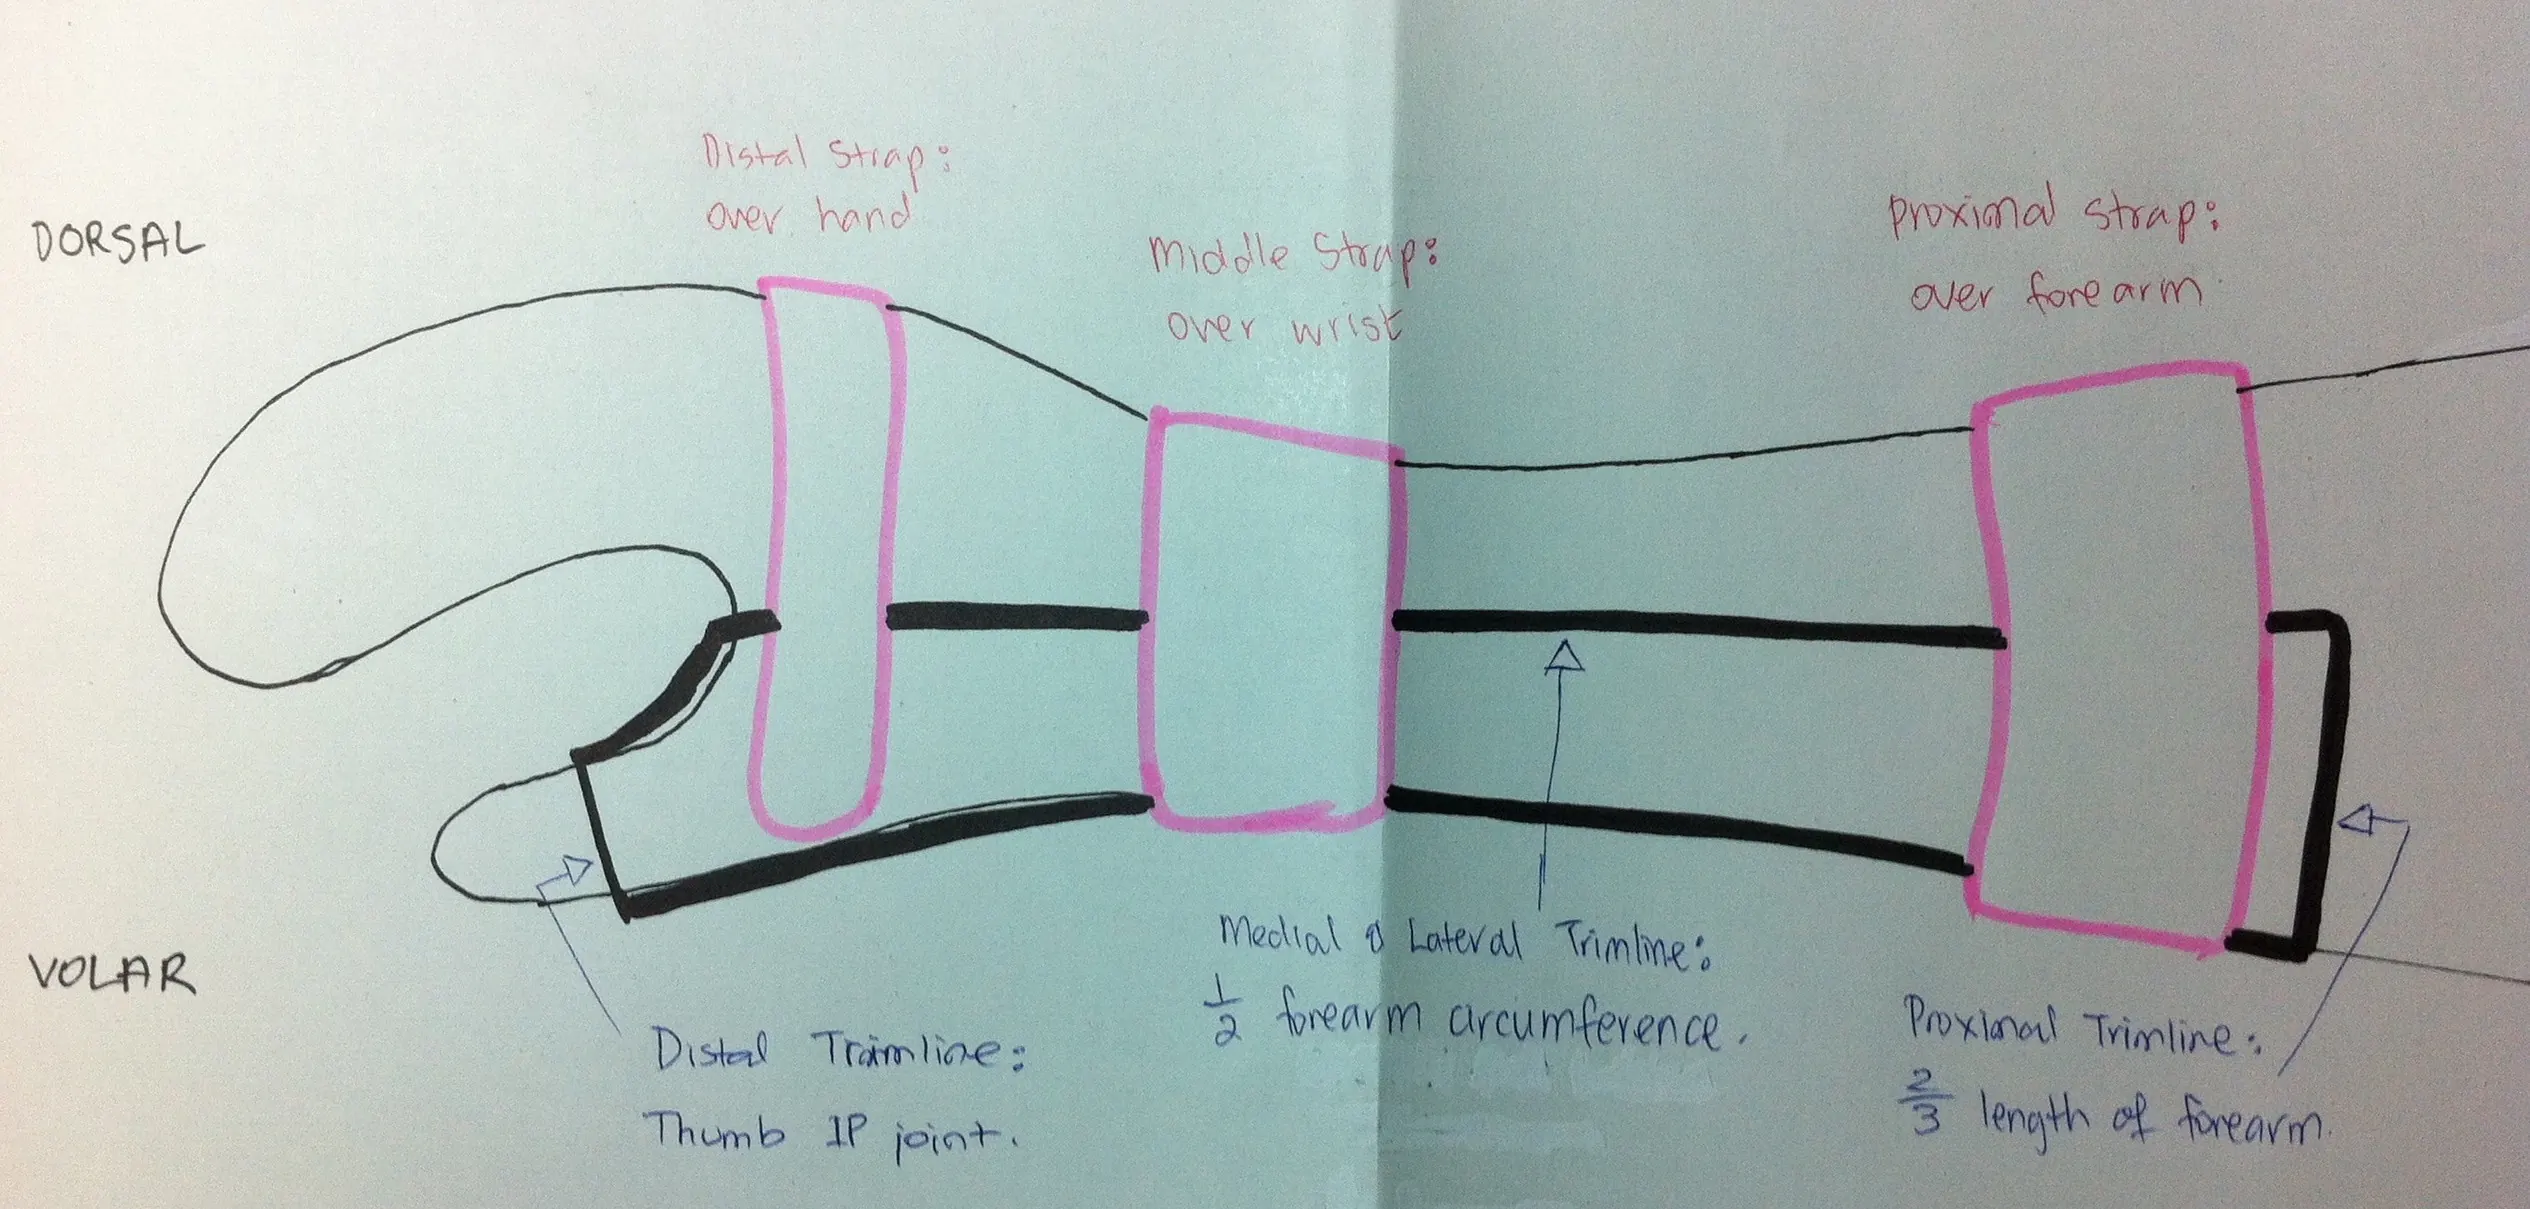 DORSAL
Distal Strap:
over hand
Middle Strap:
over wrist
Proximal Strap:
over forearm
VOLAR
Distal Trimline:
Thumb IP joint.
Medial & Lateral Trimline:
1/2 forearm circumference.
Proximal Trimline:
2/3 length of forearm.